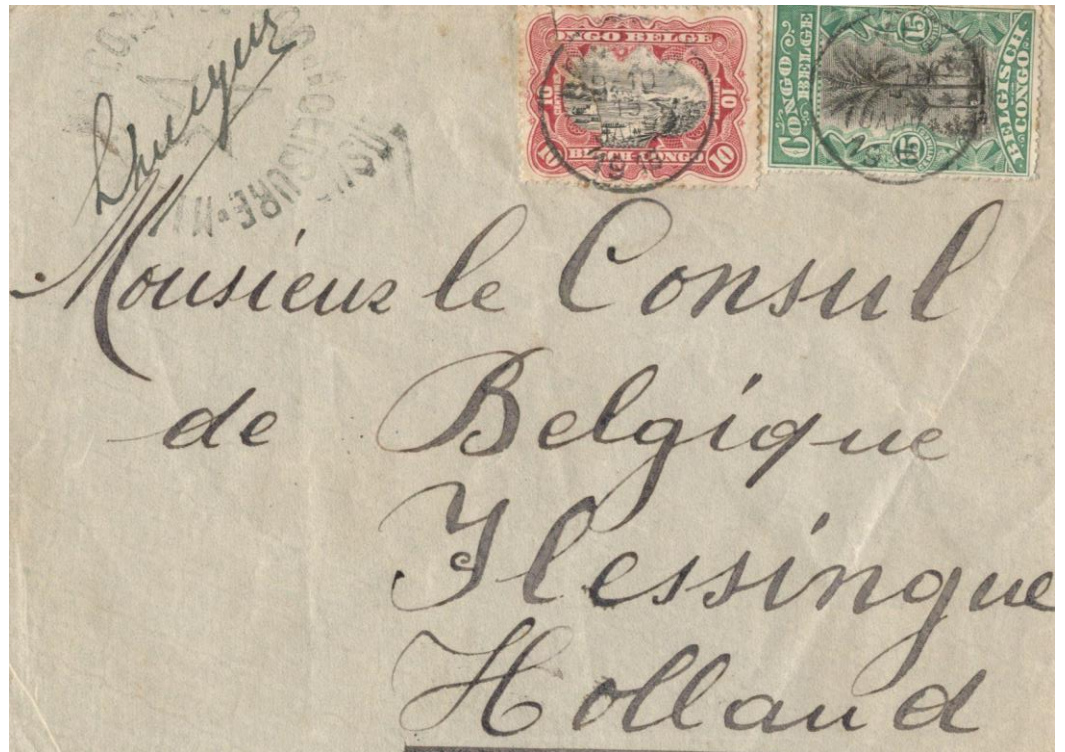 CENSURE
CONGO BELGE
10 CENTIMES
10
10
10
BELGISCH CONGO
CONGO BELGE
15
15
BELGISCH CONGO
Monsieur le Consul
de Belgique
Flessingue
Holland